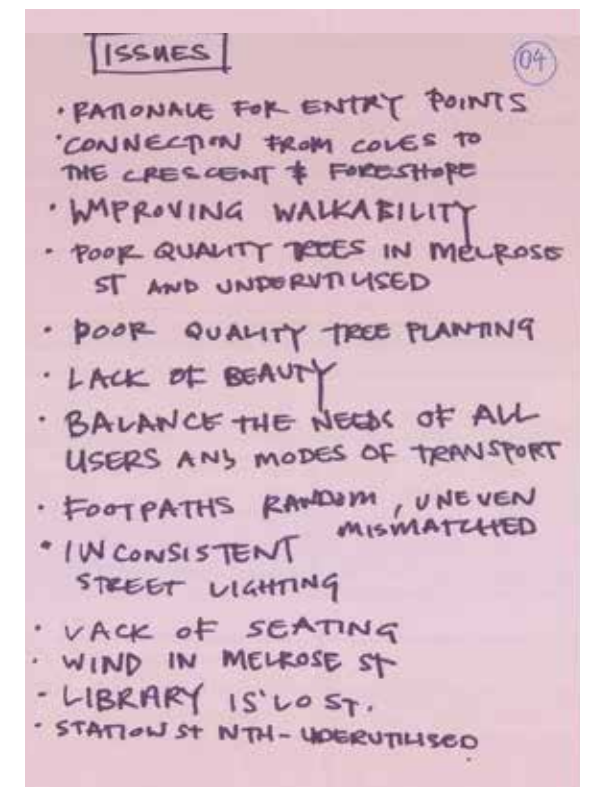 ISSUES
04
• RATIONALE FOR ENTRY POINTS
• CONNECTION FROM COVES TO
THE CRESCENT & FORESHORE
• IMPROVING WALKABILITY
• POOR QUALITY TREES IN MELROSE
ST AND UNDERUTILISED
• POOR QUALITY TREE PLANTING
• LACK OF BEAUTY
• BALANCE THE NEEDS OF ALL
USERS AND MODES OF TRANSPORT
• FOOTPATHS RANDOM, UNEVEN
MISMATCHED
• INCONSISTENT
STREET LIGHTING
• LACK OF SEATING
• WIND IN MELROSE ST
- LIBRARY IS 'LOST.
• STATION ST NTH - UDERUTILISED